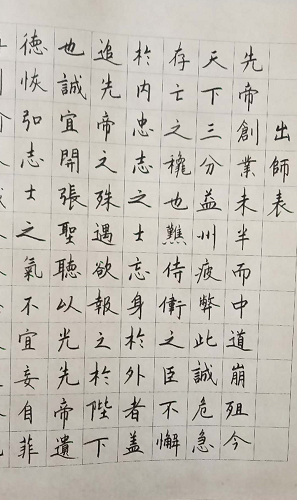 出師表
先帝創業未半而中道崩殂今
天下三分益州疲弊此誠危急
存亡之穐也㸐侍衛之臣不懈
於内忠志之士忘身於外者盖
追先帝之殊遇欲報之於陛下
也誠宜開張聖聽以光先帝遺
德恢弘志士之氣不宜妄自菲